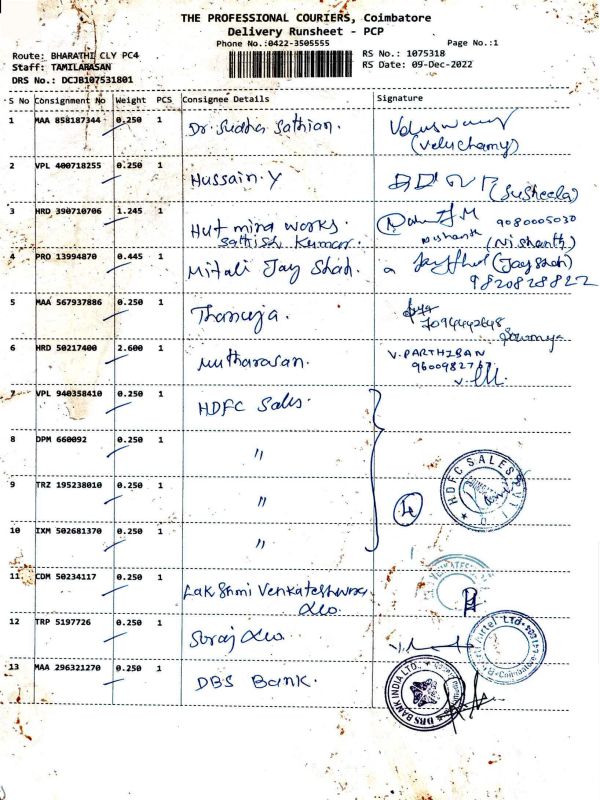 THE PROFESSIONAL COURIERS, Coimbatore
Delivery Runsheet - PCP
Phone No.:0422-3505555
Page No.:1
Route: BHARATHI CLY PC4
RS No.: 1075318
Staff: TAMILARASAN
RS Date: 09-Dec-2022
DRS No.: DCJB107531801
S No Consignment No Weight PCS Consignee Details Signature
1 MAA 858187344 0.250 1 Dr. Sudha Sathian.
(Veluchamy)
2 VPL 400718255 0.250 1 Hussain.Y
(Susheela)
3 HRD 390710706 1.245 1 Hut mira works. 9080005030
Sathish Kumar. Nishanth (Nishanth)
4 PRO 13994870 0.445 1 Mitali Jay Shah. (Jay Shah)
9820828822
5 MAA 567937886 0.250 1 Thanuja.
7094442648
Sowmya
6 HRD 50217400 2.600 1 Mutharasan. V.PARTHIBAN
7 VPL 940358410 0.250 1 HDFC Sales.
8 DPM 660092 0.250 1 "
9 TRZ 195238010 0.250 1 "
HDFC SALES PVT
4
10 IXM 502681370 0.250 1 "
11 CDM 50234117 0.250 1 Lakshmi Venkateshwra
12 TRP 5197726 0.250 1 Suraj
Airtel Ltd
Coimbatore
13 MAA 296321270 0.250 1 DBS Bank.
DBS BANK INDIA LTD.